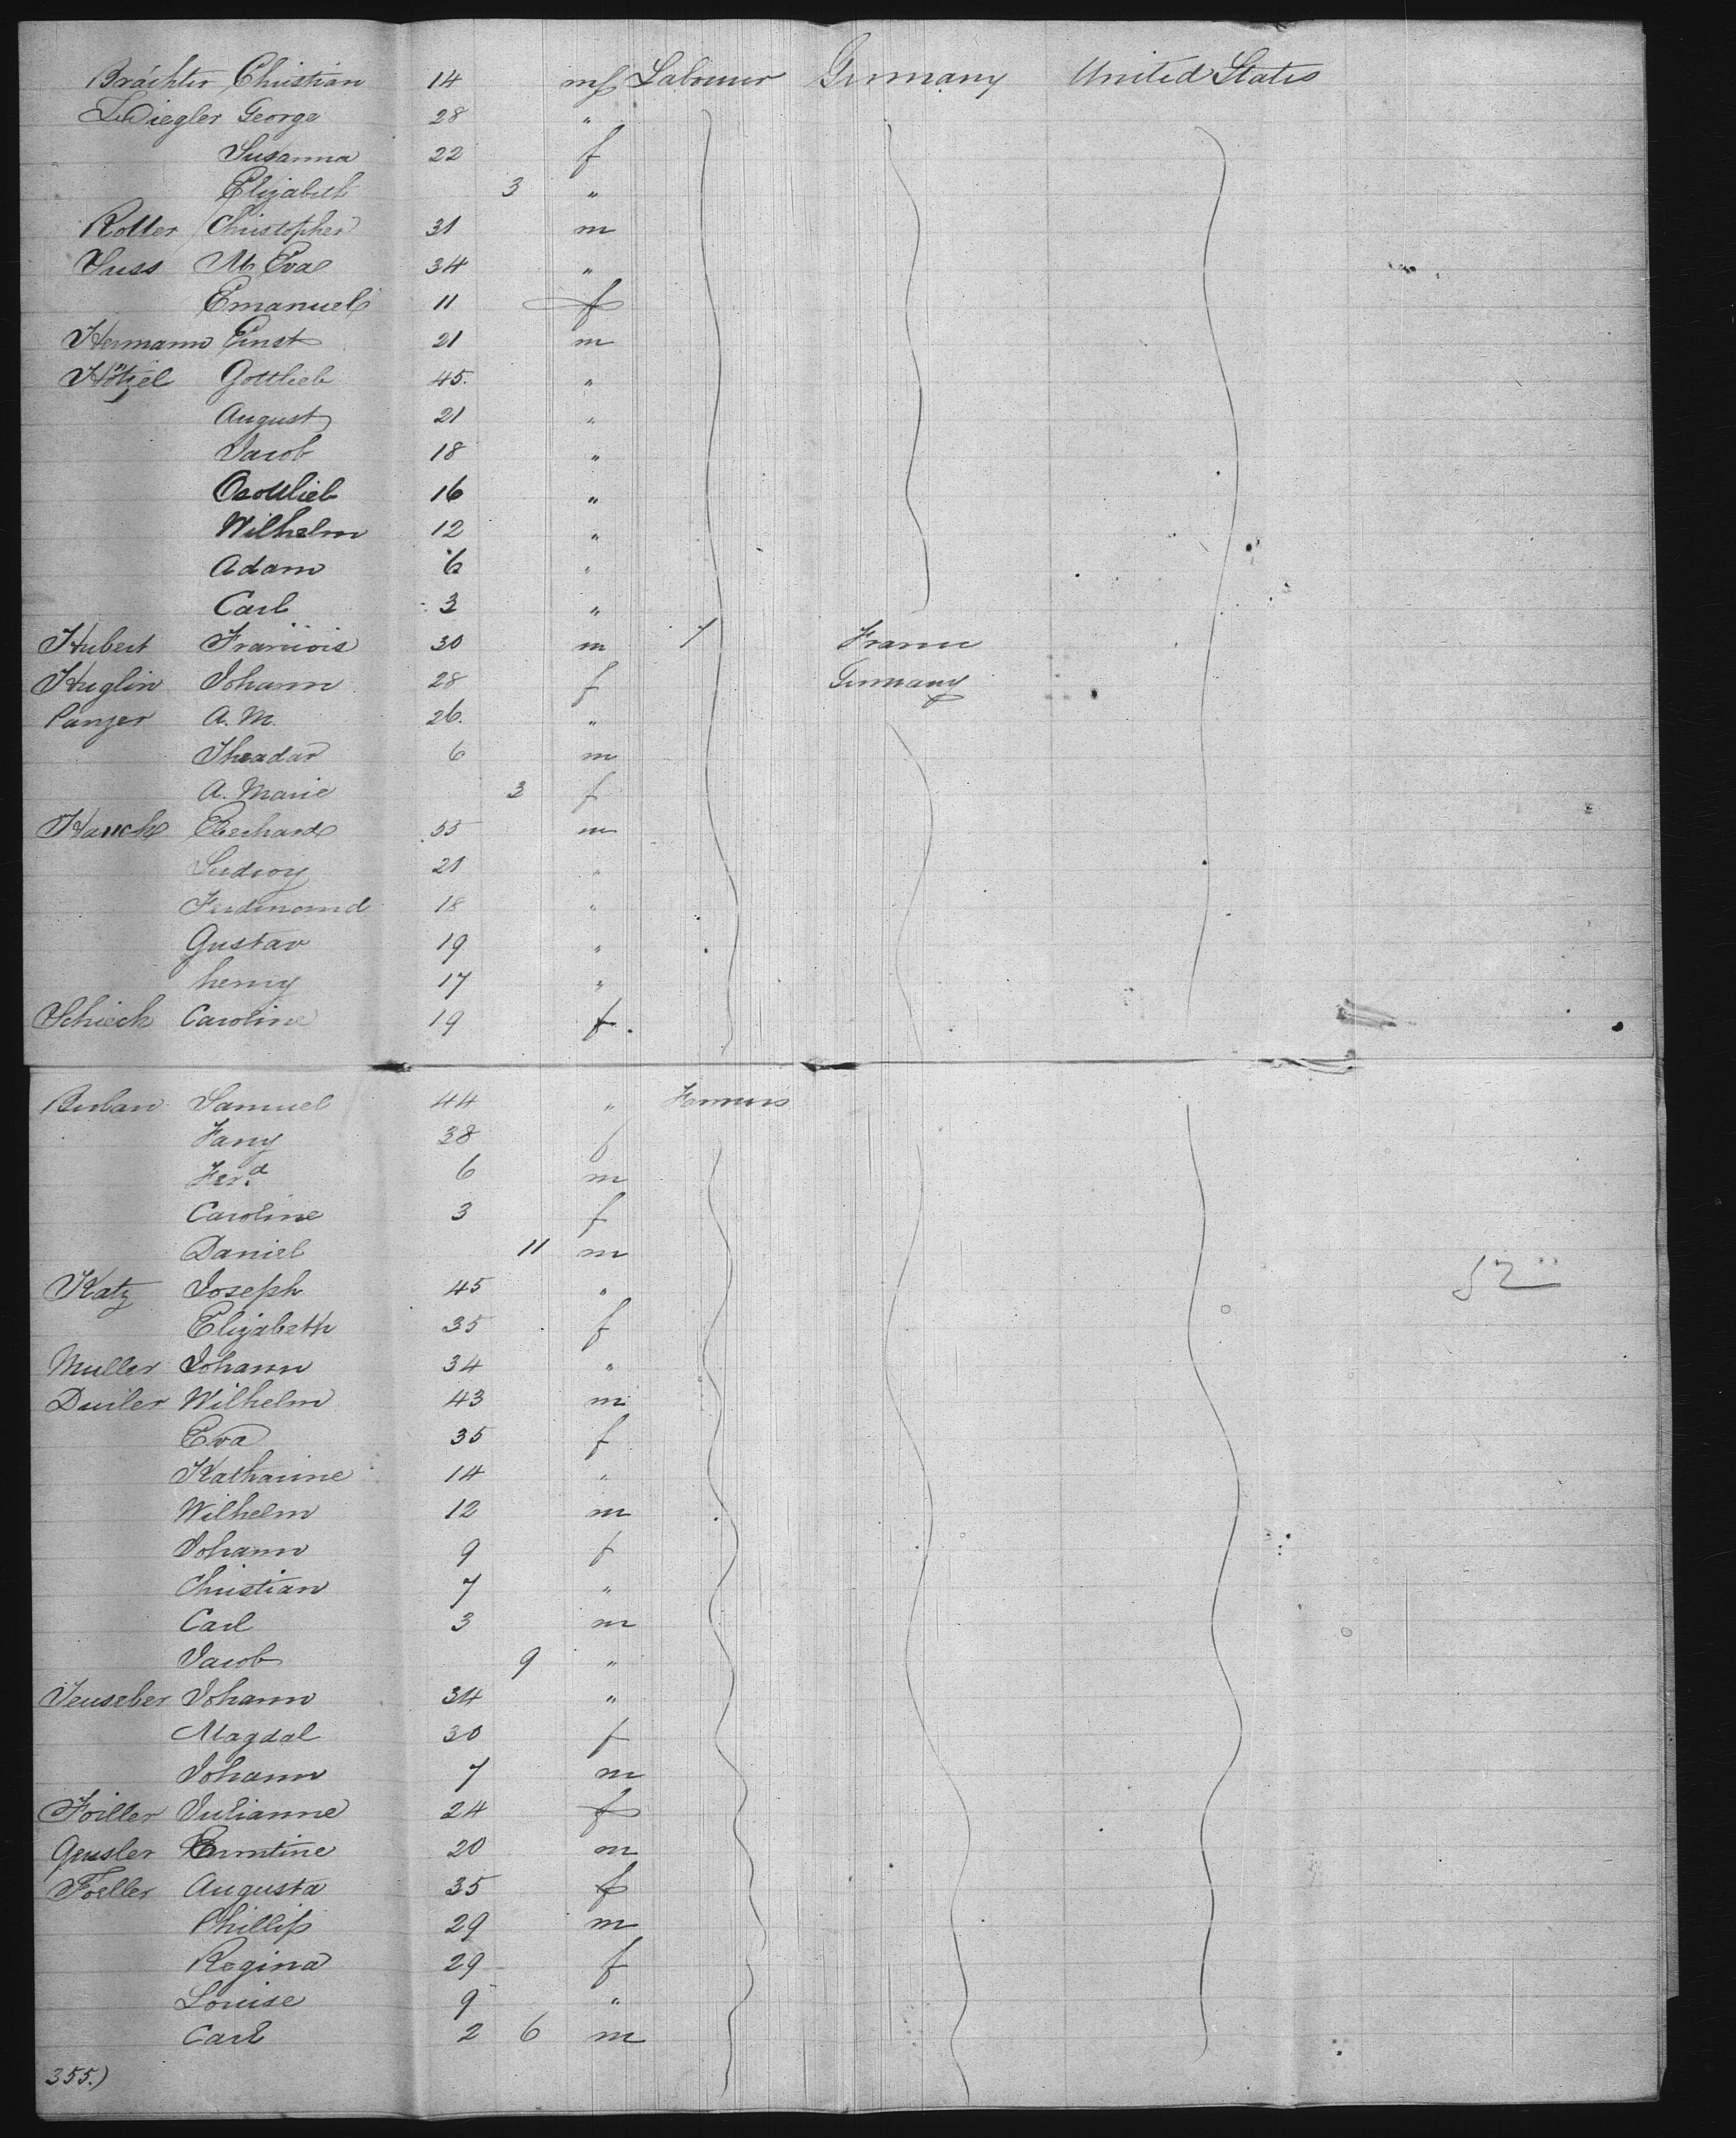 Brächter Christian 14 m Labourer Germany United States
Schiegler George 28 "
Susanna 22 f
Elizabeth 3 "
Roller Christopher 31 m
Suss M. Eva 34 "
Emanuel 11 f
Hermann Ernst 21 m
Hötzel Gottlieb 45. "
August 21 "
Jacob 18 "
Gottlieb 16 "
Wilhelm 12 "
Adam 6 "
Carl 3 "
Hubert Francois 30 m 1 France
Huglin Johann 28 f Germany
Panzer A. M. 26. "
Theadar 6 m
A. Marie 3 f
Hauck Eberhard 55 m
Ludwig 21 "
Ferdinand 18 "
Gustav 19 "
henry 17 "
Schieck Caroline 19 f.
Burlan Samuel 44 " Farmers
Fany 38 f
Ferd. 6 m
Caroline 3 f
Daniel 11 m
Katz Joseph 45 "
52
Elizabeth 35 f
Muller Johann 34 "
Duiler Wilhelm 43 m
Eva 35 f
Katharine 14 "
Wilhelm 12 m
Johann 9 f
Christian 7 "
Carl 3 m
Jacob 9 "
Teuseber Johann 34 "
Magdal 30 f
Johann 7 m
Foiller Julianne 24 f
Geusler Ernstine 20 m
Foeller Augusta 35 f
Phillip 29 m
Regina 29 f
Louise 9 "
Carl 2 6 m
355.)